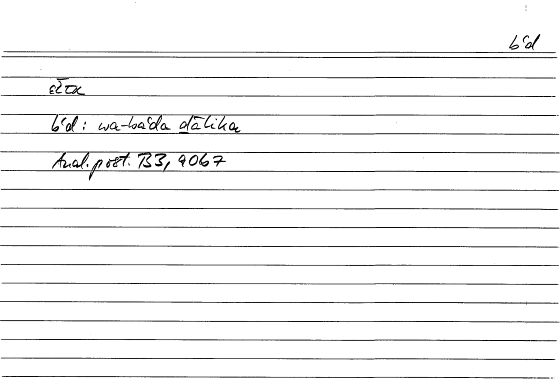 bʿd
εἶτα
bʿd: wa-baʿda ḏālika
Anal. post. B3, 90b7